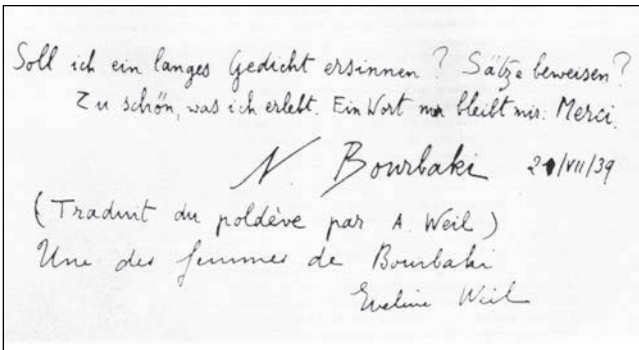 Soll ich ein langes Gedicht ersinnen? Sätze beweisen?
Zu schön, was ich erlebt. Ein Wort nur bleibt mir: Merci.
N. Bourbaki /VII/39
(Traduit du poldève par A. Weil)
Une des femmes de Bourbaki
Eveline Weil